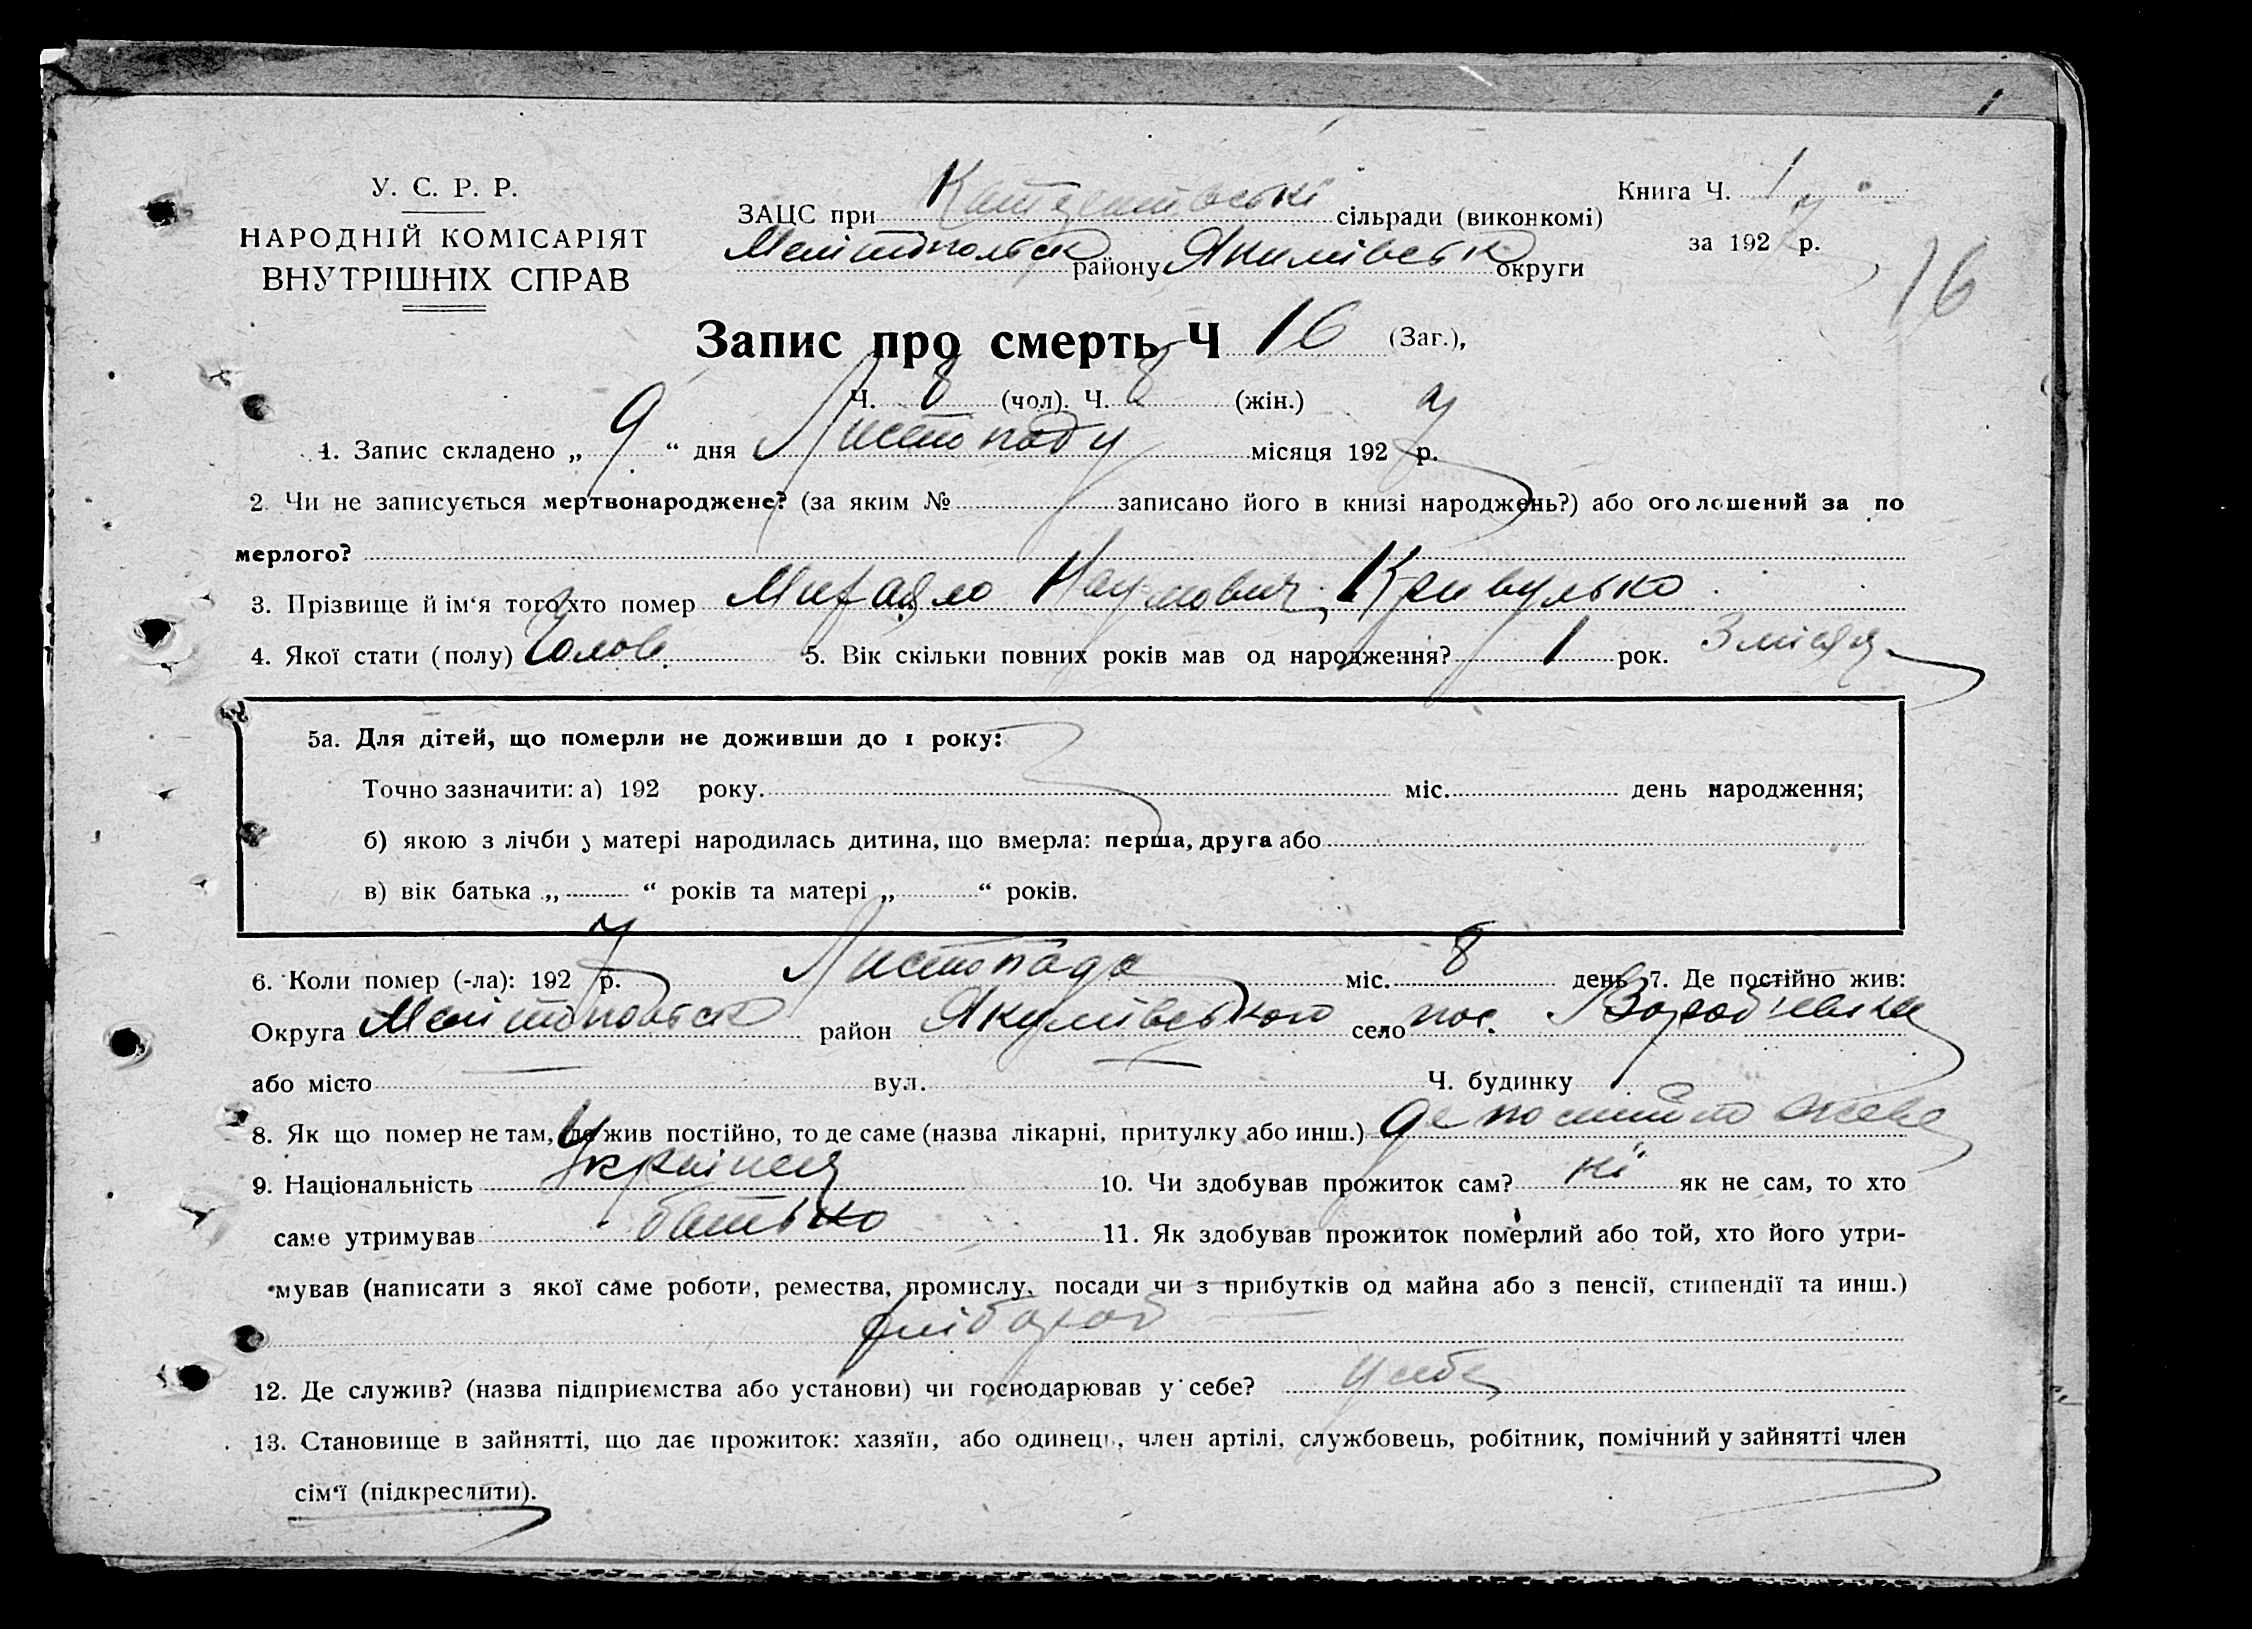 У. С. Р. Р.
НАРОДНІЙ КОМІСАРІЯТ
ВНУТРІШНІХ СПРАВ
ЗАЦС при сільради (виконкомі)
Мелітопольск району Якимівськ округи
Книга Ч. 1
за 1927 р.
16
Запис про смерть Ч 16 (Заг.),
Ч. 8 (чол). Ч. 8 (жін.)
1. Запис складено „ 9 “ дня Листопаду місяця 1927 р.
2. Чи не записується мертвонароджене? (за яким № записано його в книзі народжень?) або оголошений за по
мерлого?
3. Прізвище й ім‘я того хто помер Михайло Наумович Кривулько
4. Якої стати (полу) Чолов. 5. Вік скільки повних років мав од народження? 1 рок. 3 місяця
5а. Для дітей, що померли не доживши до 1 року:
Точно зазначити: а) 192 року. міс. день народження;
б) якою з лічби у матері народилась дитина, що вмерла: перша, друга або
в) вік батька „ “ років та матері „ “ років.
6. Коли помер (-ла): 1927 р. Листопада міс. 8 день 7. Де постійно жив:
Округа Мелітопольск район Якумівського село пос.
або місто — вул. — Ч. будинку
8. Як що помер не там, де жив постійно, то де саме (назва лікарні, притулку або инш.) де постійно живе
9. Національність Українец 10. Чи здобував прожиток сам? ні як не сам, то хто
саме утримував батько 11. Як здобував прожиток померлий або той, хто його утри-
мував (написати з якої саме роботи, ремества, промислу, посади чи з прибутків од майна або з пенсії, стипендії та инш.)
хлібороб
12. Де служив? (назва підприємства або установи) чи господарював у себе? у себе
13. Становище в зайнятті, що дає прожиток: хазяїн, або одинець, член артілі, службовець, робітник, помічний у зайнятті член
сім‘ї (підкреслити).